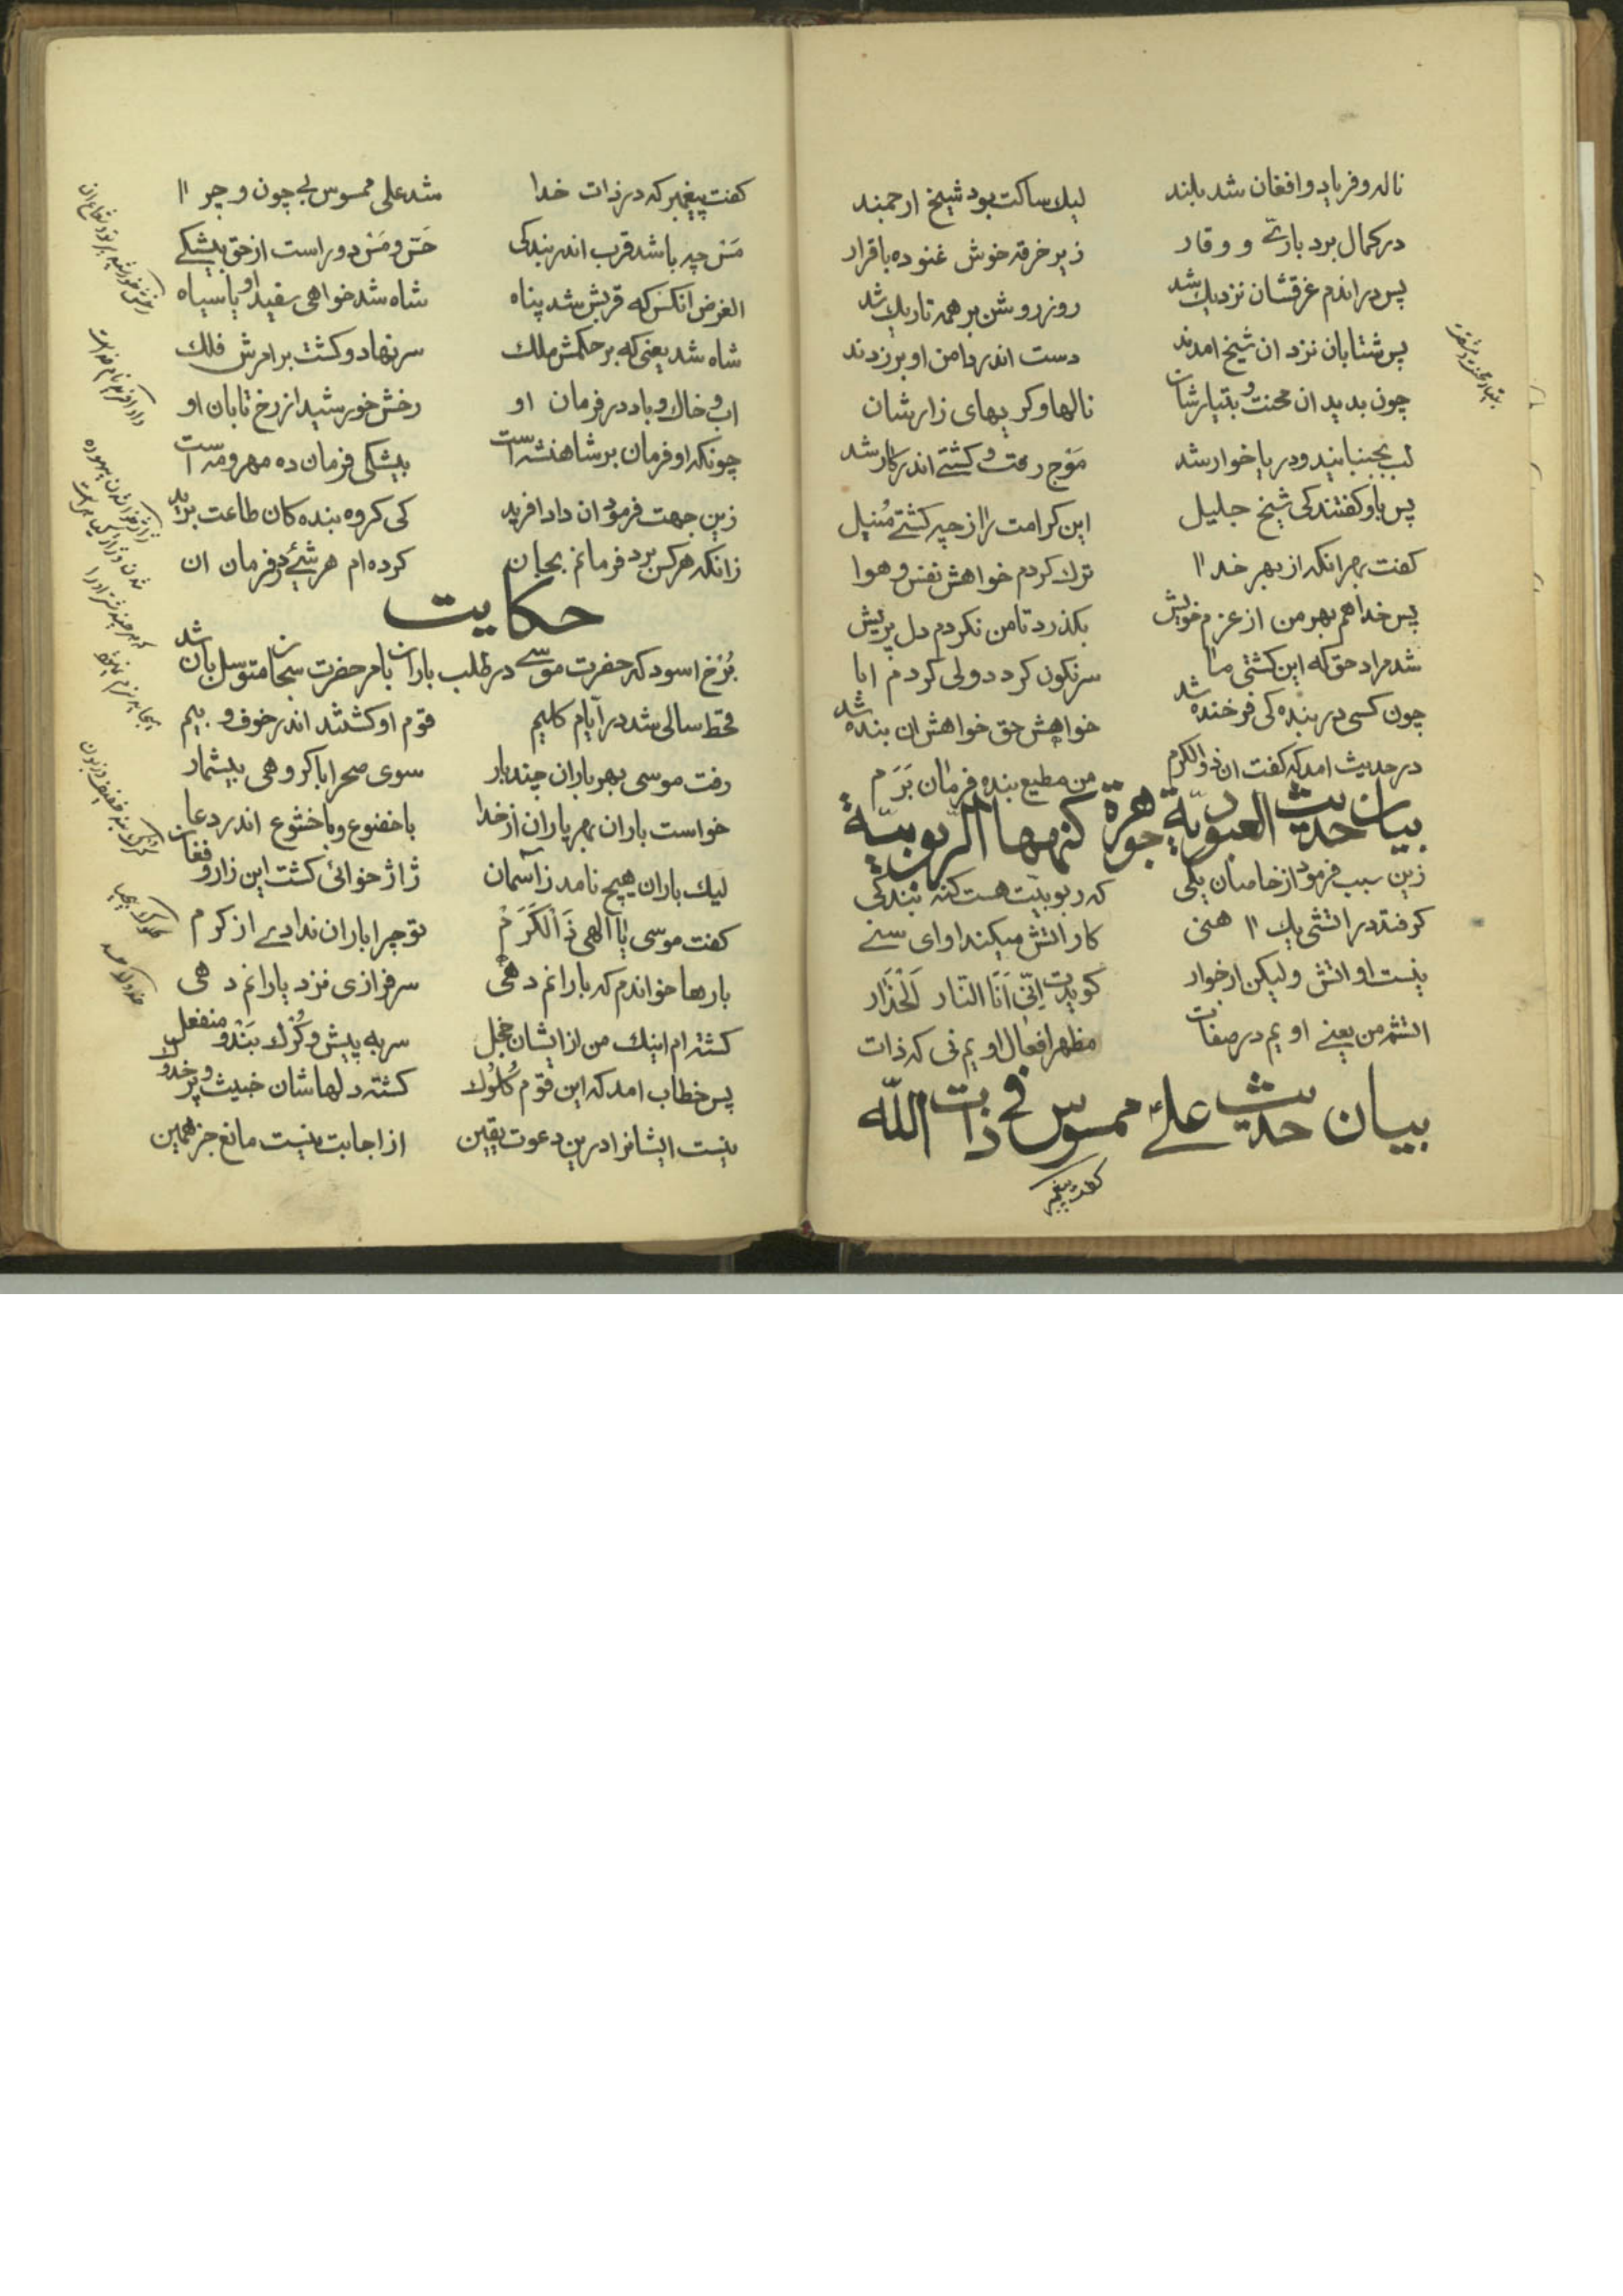 ناله و فریاد و افغان شد بلند لیك ساکت بود شیخ ارجمند
در کمال برد باری و وقار زیر خرقه خوش غنوده باقرار
پس در اندم غرقشان نزدیك شد روز روشن بر همه تاریك شد
پس شتابان نزد ان شیخ امدند دست اندر دامن او برزدند
چون بدید ان محنت و بتیارشان نالها و کریهای زارشان
لب بجنبانید و دریا خوار شد موج رفت و کشتی اندر کار شد
پس باو کفتند کی شیخ جلیل این کرامت را از چه کشتی منیل
کفت بهر انکه از بهر خدا ترك کردم خواهش نفس و هوا
پس خدا هم بهر من از عزم خویش بکذرد تا من نکردم دل پریش
شد مراد حق که این کشتی ما سرنکون کردد ولی کردم ابا
چون کسی در بنده کی فرخنده شد خواهش حق خواهش ان بنده شد
در حدیث امد که کفت ان ذوالکرم من مطیع بنده فرمان برم
بیان حدیث العبودیة جوهرة کنهها الربوبیّة
زین سبب فرمود از خاصان یکی که ربوبیت هست کنه بندکی
کر فتد در اتشی یك اهنی کار اتش میکند او ای سنی
نیست او اتش ولیکن از خوار کویدت اِنّی اَنَا النّار اَلْحَذار
اتشم من یعنی اویم در صفات مظهر افعال اویم نی که ذات
بیان حدیث علی ممسوس فی ذات الله
کفت پیغمبر
کفت پیغمبر که در ذات خدا شد علی ممسوس بی چون و چرا
مَسّ چه باشد قرب اندر بندکی حَسّ و مَسّ دور است از حق بیشکی
الغرض انکس که قربش شد پناه شاه شد خواهی سفید او یا سیاه
شاه شد یعنی که بر حکمش ملك سر نهاد و کشت بر امرش فلك
اب و خاك و باد در فرمان او رخش خورشید از رخ تابان او
چونکه او فرمان بر شاهنشه است بیشکی فرمان ده مهر و مه است
زین جهت فرمود ان داد افرید کی کروه بنده کان طاعت برید
زانکه هر کس برد فرمانم بجان کرده ام هر شیٔ در فرمان ان
حکایت
بُرْخ اسود که حضرت موسی در طلب باران بامر حضرت سبحان متوسل بان شد
قحط سالی شد در ایام کلیم قوم او کشتند اندر خوف و بیم
رفت موسی بهر باران چند بار سوی صحرا با کروهی بیشمار
خواست باران بهر یاران از خدا با خضوع و با خشوع اندر دعا
لیك باران هیچ نامد ز آسمان ژاژ خوائی کشت این زار و فغان
کفت موسی یا الهی ذَالْکَرَمْ تو چرا باران ندادی از کرم
بارها خواندم که بارانم دهی سرفرازی نزد یارانم دهی
کشته ام اینك من از ایشان خجل سر به پیش و کُرْك بَنْد و منفعل
پس خطاب امد که این قوم کُلوك کشته دلهاشان خبیث و پر خدوك
نیست ایشانرا درین دعوت یقین از اجابت نیست مانع جز همین